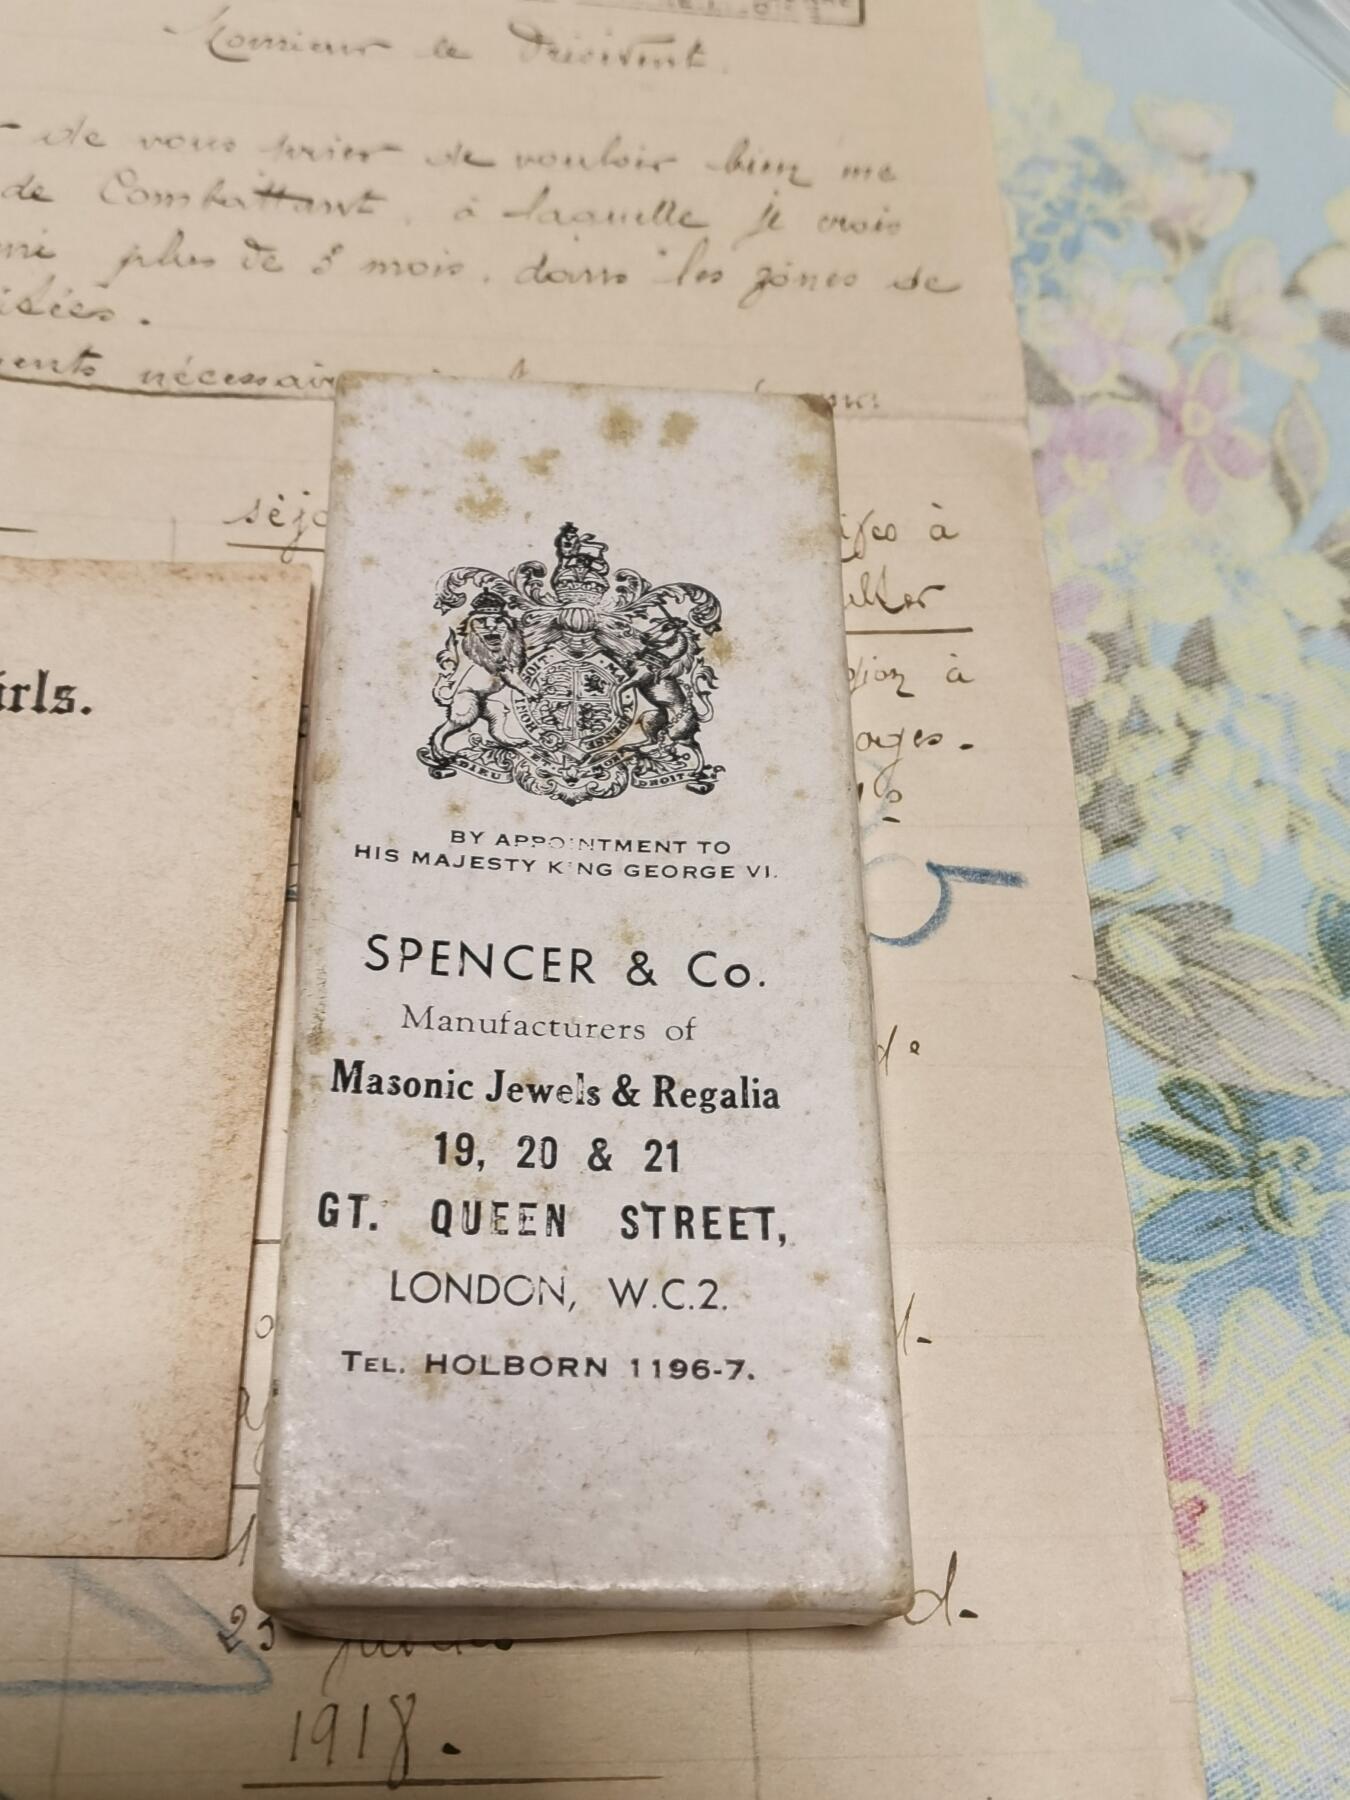 Monsieur le Président.
de vous prier de vouloir bien me
de Combattant, à laquelle je crois
plus de 3 mois, dans les zones de
nécessair
séjo
à
irls.
à
DIEU ET MON DROIT
BY APPOINTMENT TO
HIS MAJESTY KING GEORGE VI.
SPENCER & Co.
Manufacturers of
Masonic Jewels & Regalia
19, 20 & 21
GT. QUEEN STREET,
LONDON, W.C.2.
TEL. HOLBORN 1196-7.
d.
1918.